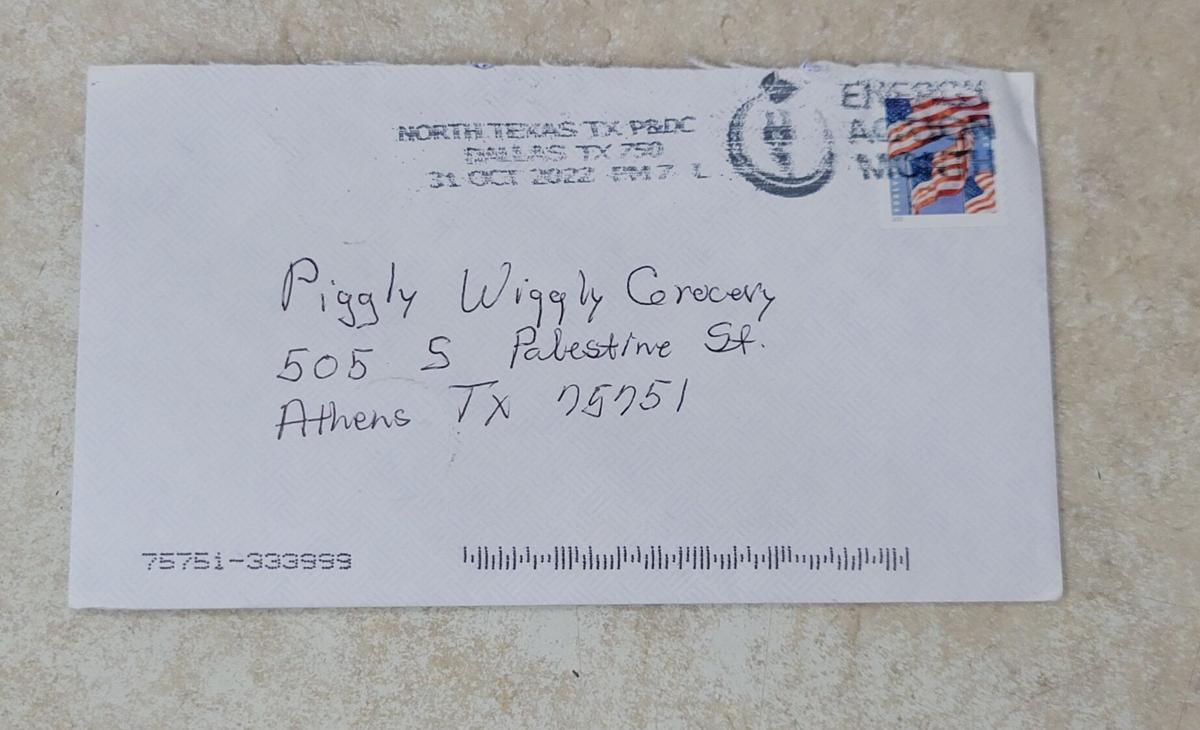 NORTH TEXAS TX P&DC
DALLAS TX 750
31 OCT 2022 PM 7 L
ENERGY
ACTION
MONTH
FOREVER
Piggly Wiggly Grocery
505 S Palestine St.
Athens TX 75751
75751-333999